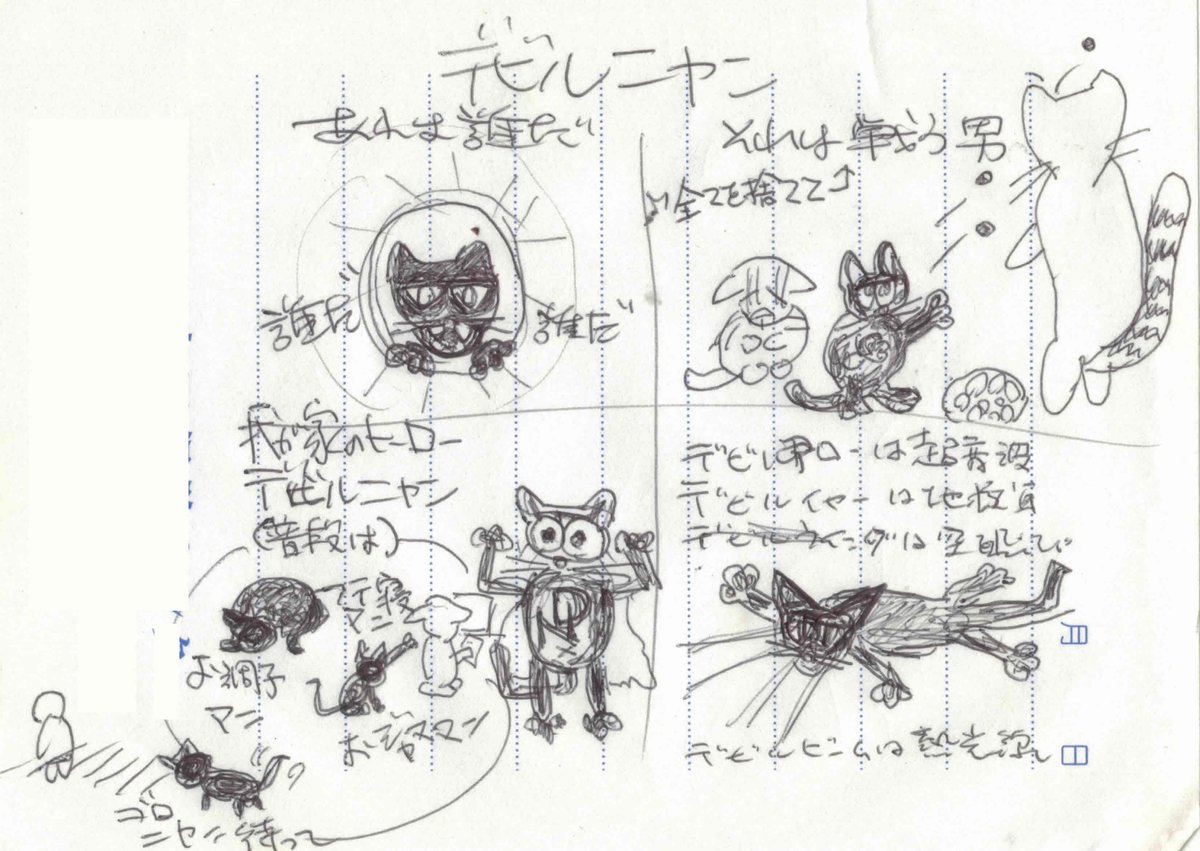 デビルニャン
あれは誰だ
それは戦う男
全てを捨てて
誰だ
誰だ
我が家のヒーロー
デビルニャン
(普段は)
寝
マン
お調子
マン
おジャママン
ゴロ
ニャン待って
は超音波
デビルイヤーは地獄
デビルウイングは空
デビルビームは熱光線
月
日